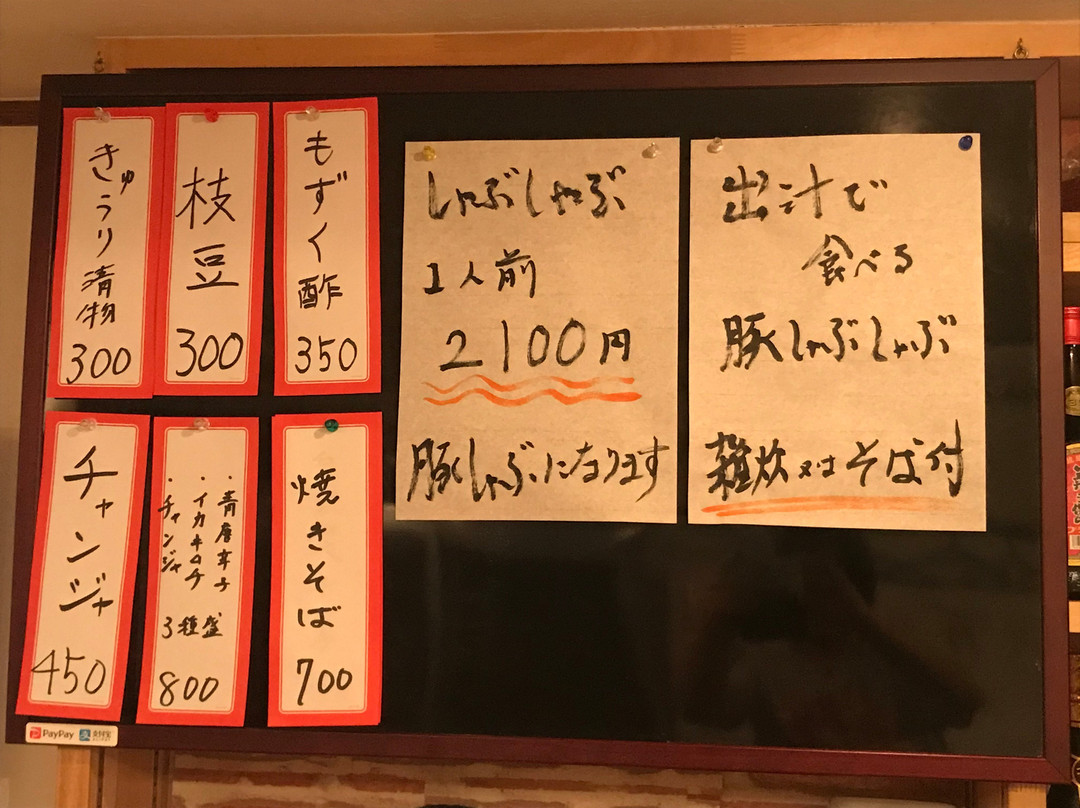 きゅうり漬物
300
枝豆
300
もずく酢
350
チャンジャ
450
・青唐辛子
・イカキムチ
・チャンジャ
3種盛
800
焼きそば
700
しゃぶしゃぶ
1人前
2100円
豚しゃぶになります
出汁で
食べる
豚しゃぶしゃぶ
雑炊又はそば付
PayPay
支付宝